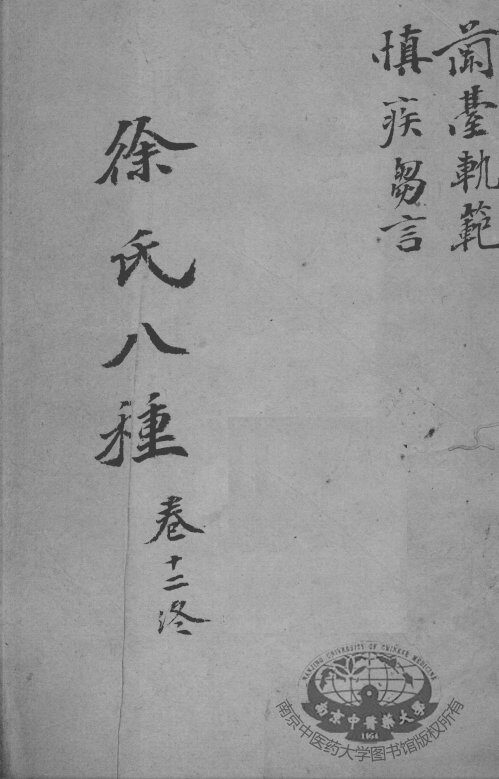 蘭臺軌範
慎疾芻言
徐氏八種
卷十二終
NANJING UNIVERSITY OF CHINESE MEDICINE
南京中醫藥大學
1954
南京中医药大学图书馆版权所有